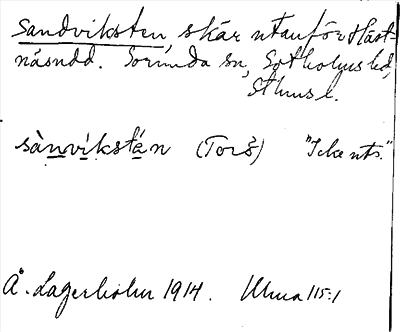 Sandviksten, skär utanför Häst-
näsudd. Sorunda sn, Sotholms hd,
Sthms l.
sànvíkstä́n (Tors) "Icke nts."
Å. Lagerholm 1914. Muua 115:1